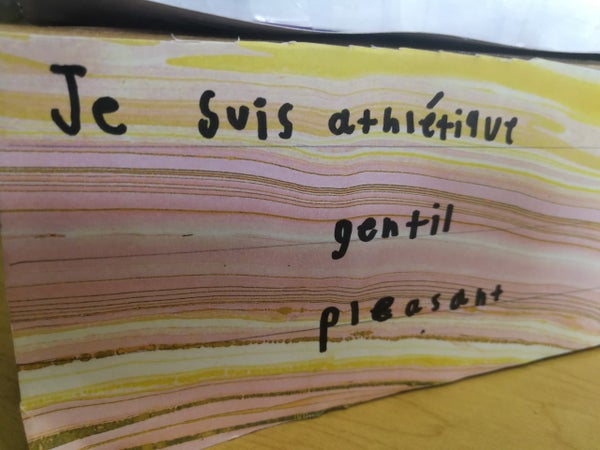 Je suis athlétique
gentil
pleasant